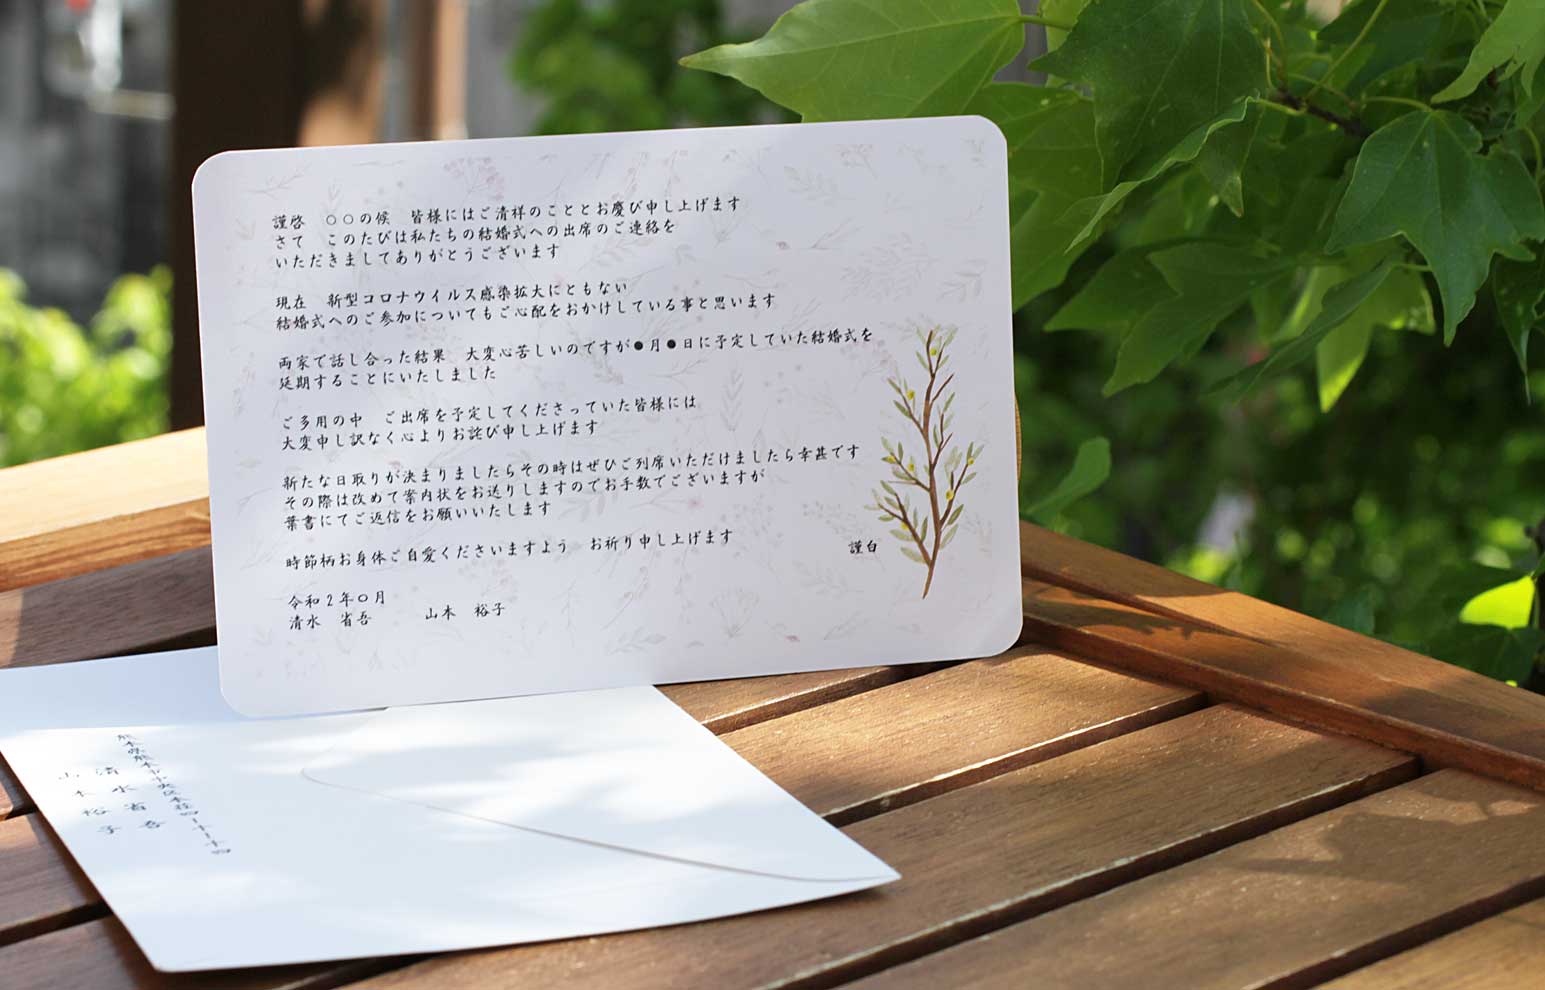 謹啓　○○の候　皆様にはご清祥のこととお慶び申し上げます
さて　このたびは私たちの結婚式への出席のご連絡を
いただきましてありがとうございます
現在　新型コロナウイルス感染拡大にともない
結婚式へのご参加についてもご心配をおかけしている事と思います
両家で話し合った結果　大変心苦しいのですが●月●日に予定していた結婚式を
延期することにいたしました
ご多用の中　ご出席を予定してくださっていた皆様には
大変申し訳なく心よりお詫び申し上げます
新たな日取りが決まりましたらその時はぜひご列席いただけましたら幸甚です
その際は改めて案内状をお送りしますのでお手数でございますが
葉書にてご返信をお願いいたします
時節柄お身体ご自愛くださいますよう　お祈り申し上げます
謹白
令和2年○月
清水　省吾　　　山本　裕子
熊本県熊本市中央区本荘四
清水省吾
山本裕子